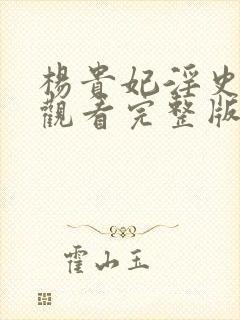 楊貴妃淫史
觀看完整版
霍山玉